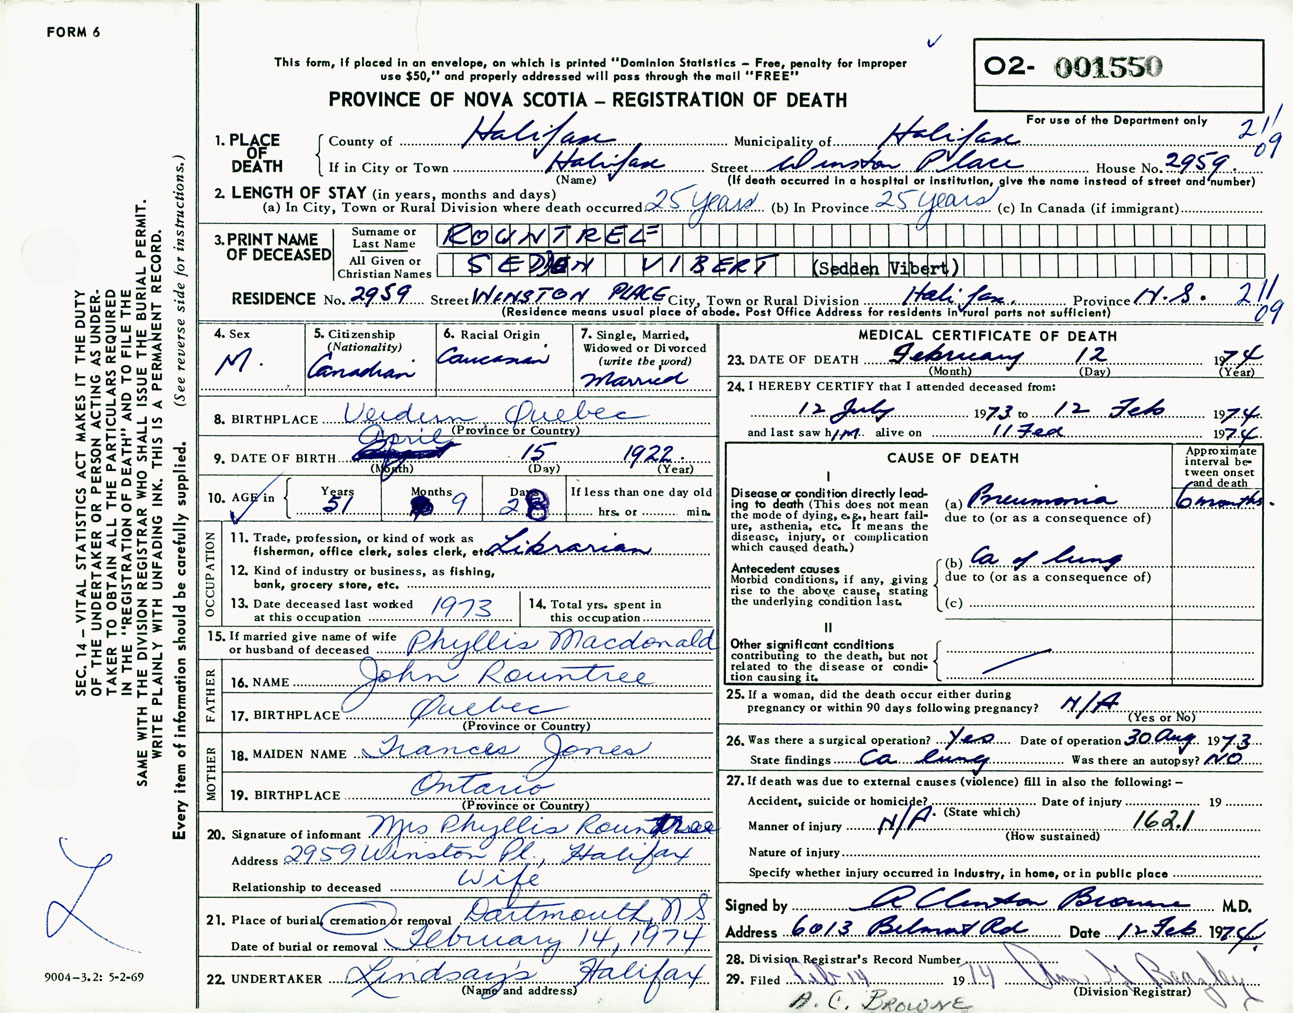 FORM 6
This form, if placed in an envelope, on which is printed "Dominion Statistics – Free, penalty for improper
use $50," and properly addressed will pass through the mail "FREE"
O2- 001550
For use of the Department only
PROVINCE OF NOVA SCOTIA – REGISTRATION OF DEATH
211
09
1. PLACE OF DEATH
County of Halifax Municipality of Halifax
If in City or Town Halifax Street Winston Place House No. 2959
(Name) (If death occurred in a hospital or institution, give the name instead of street and number)
2. LENGTH OF STAY (in years, months and days)
(a) In City, Town or Rural Division where death occurred 25 years (b) In Province 25 years (c) In Canada (if immigrant)
3. PRINT NAME OF DECEASED
Surname or Last Name ROUNTREE
All Given or Christian Names SEDDEN VIBERT (Sedden Vibert)
RESIDENCE No. 2959 Street WINSTON PLACE City, Town or Rural Division Halifax. Province N.S. 211
09
(Residence means usual place of abode. Post Office Address for residents in rural parts not sufficient)
4. Sex
M.
5. Citizenship
(Nationality)
Canadian
6. Racial Origin
Caucasian
7. Single, Married,
Widowed or Divorced
(write the word)
Married
8. BIRTHPLACE Verdun Quebec
(Province or Country)
9. DATE OF BIRTH April 15 1922
(Month) (Day) (Year)
10. AGE in
Years Months Days
51 9 28
If less than one day old
hrs. or min.
OCCUPATION
11. Trade, profession, or kind of work as
fisherman, office clerk, sales clerk, etc. Librarian
12. Kind of industry or business, as fishing,
bank, grocery store, etc.
13. Date deceased last worked
at this occupation 1973
14. Total yrs. spent in
this occupation
15. If married give name of wife
or husband of deceased Phyllis Macdonald
FATHER
16. NAME John Rountree
17. BIRTHPLACE Quebec
(Province or Country)
MOTHER
18. MAIDEN NAME Frances Jones
19. BIRTHPLACE Ontario
(Province or Country)
20. Signature of informant Mrs Phyllis Rountree
Address 2959 Winston Pl., Halifax
Relationship to deceased Wife
21. Place of burial, cremation or removal Dartmouth, NS
Date of burial or removal February 14, 1974
22. UNDERTAKER Lindsay's Halifax
(Name and address)
MEDICAL CERTIFICATE OF DEATH
23. DATE OF DEATH February 12 1974
(Month) (Day) (Year)
24. I HEREBY CERTIFY that I attended deceased from:
12 July 1973 to 12 Feb 1974
and last saw him alive on 11 Feb 1974
CAUSE OF DEATH
Approximate
interval be-
tween onset
and death
I
Disease or condition directly lead-
ing to death (This does not mean
the mode of dying, e.g., heart fail-
ure, asthenia, etc. It means the
disease, injury, or complication
which caused death.)
(a) Pneumonia 6 months.
due to (or as a consequence of)
Antecedent causes
Morbid conditions, if any, giving
rise to the above cause, stating
the underlying condition last.
(b) Ca of lung
due to (or as a consequence of)
(c)
II
Other significant conditions
contributing to the death, but not
related to the disease or condi-
tion causing it.
25. If a woman, did the death occur either during
pregnancy or within 90 days following pregnancy? N/A
(Yes or No)
26. Was there a surgical operation? Yes Date of operation 30 Aug 1973
State findings Ca lung Was there an autopsy? NO
27. If death was due to external causes (violence) fill in also the following: –
Accident, suicide or homicide? Date of injury 19
(State which)
Manner of injury N/A. 162.1
(How sustained)
Nature of injury
Specify whether injury occurred in industry, in home, or in public place
Signed by A Clinton Browne M.D.
Address 6013 Belmont Rd Date 12 Feb 1974
28. Division Registrar's Record Number
29. Filed Feb 14 1974
(Division Registrar)
A. C. BROWNE
SEC. 14 – VITAL STATISTICS ACT MAKES IT THE DUTY
OF THE UNDERTAKER OR PERSON ACTING AS UNDER-
TAKER TO OBTAIN ALL THE PARTICULARS REQUIRED
IN THE "REGISTRATION OF DEATH" AND TO FILE THE
SAME WITH THE DIVISION REGISTRAR WHO SHALL ISSUE THE BURIAL PERMIT.
WRITE PLAINLY WITH UNFADING INK. THIS IS A PERMANENT RECORD.
Every item of information should be carefully supplied. (See reverse side for instructions.)
9004–3.2: 5-2-69